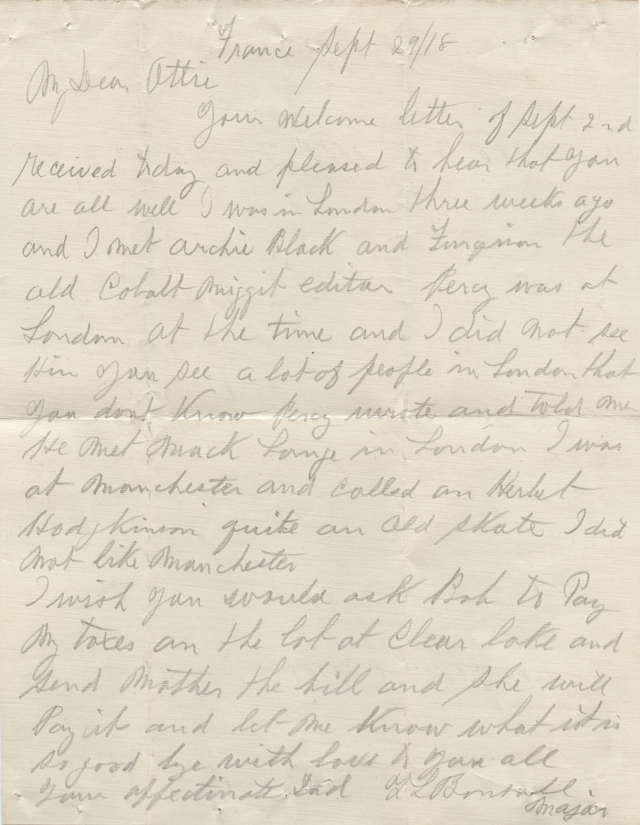 France Sept 29/18
My Dear Ottie
Your welcome letter of Sept 2nd
received today and pleased to hear that you
are all well I was in London three weeks ago
and I met archie Black and the
old Cobalt editor Percy was at
London at the time and I did not see
Him you see a lot of people in London that
you dont Know Percy wrote and told me
He met Mack Lange in London I was
at Manchester and called on Herbet
Hodgkinson quite an old skate I did
not like Manchester
I wish you would ask Bob to Pay
My taxes on the lot at Clear lake and
send Mother the bill and she will
Pay it and let me Know what it is
so good bye with love to you all
your affectinate Dad
Major